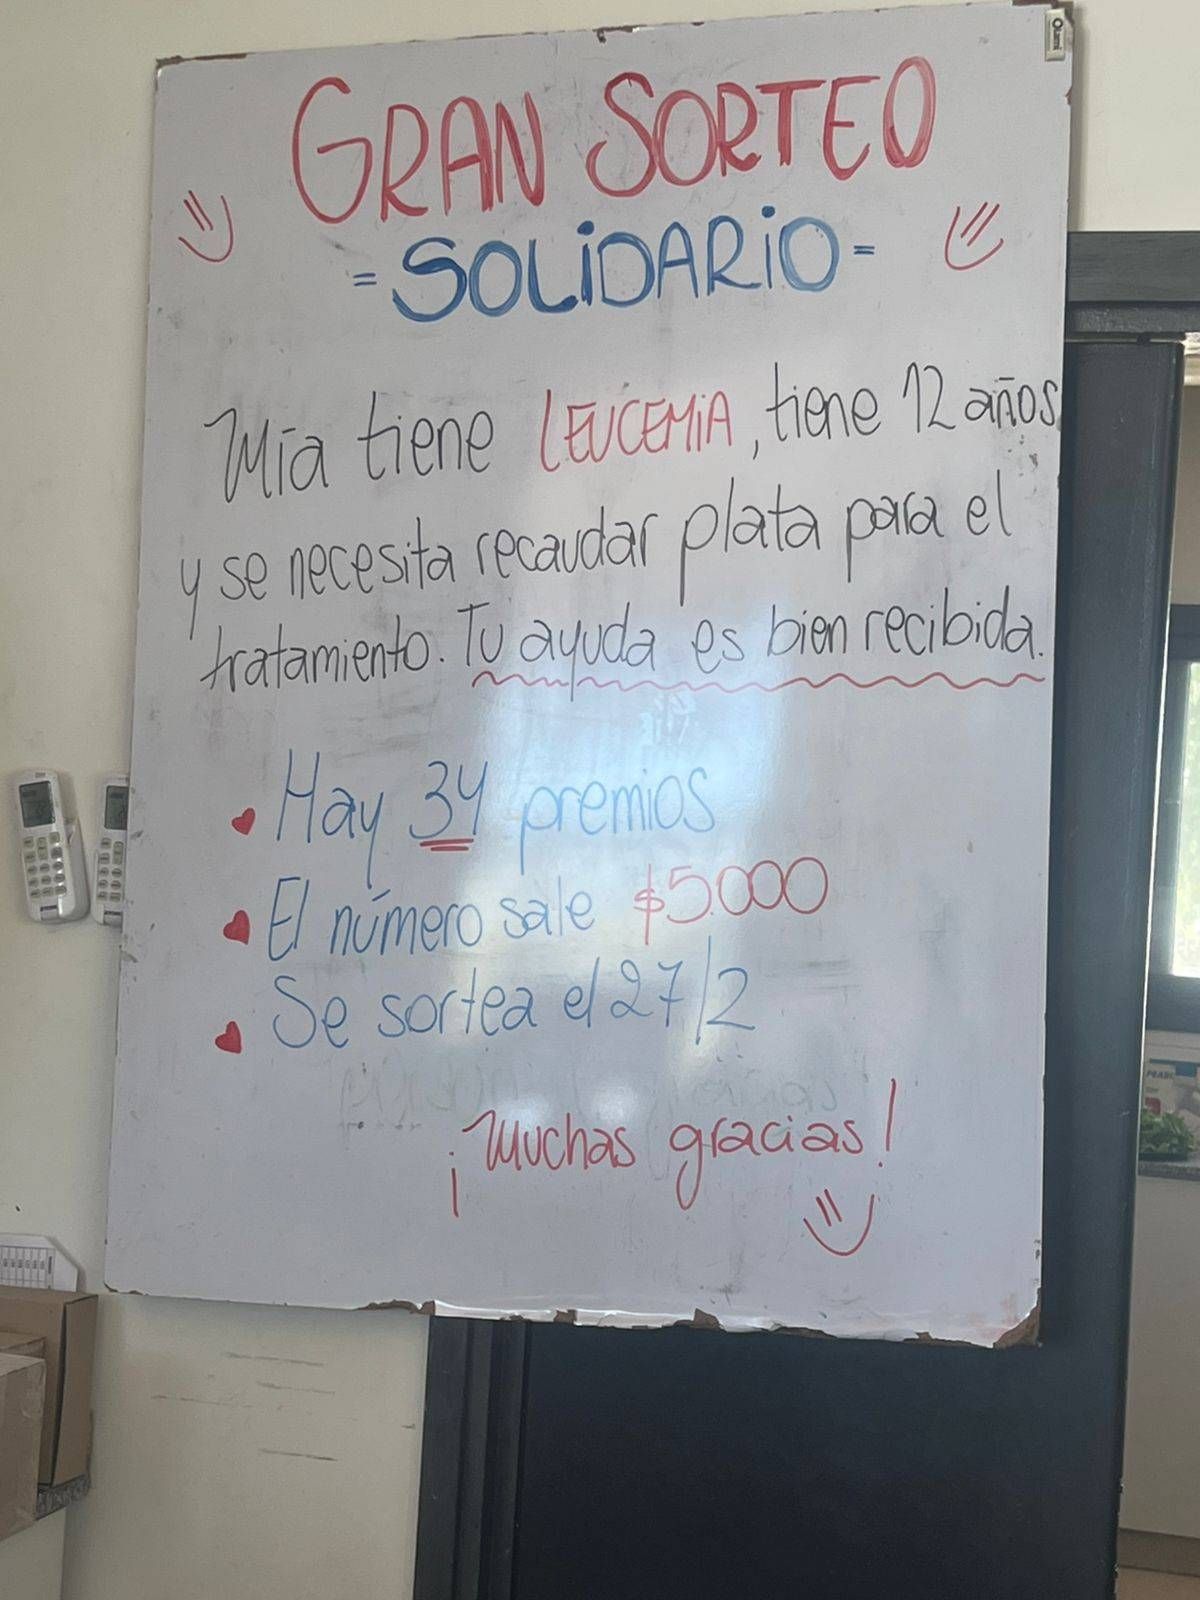 GRAN SORTEO
=SOLIDARIO=
Mía tiene LEUCEMIA, tiene 12 años
y se necesita recaudar plata para el
tratamiento. Tu ayuda es bien recibida.
Hay 34 premios
El número sale $5.000
Se sortea el 27/2
¡Muchas gracias!